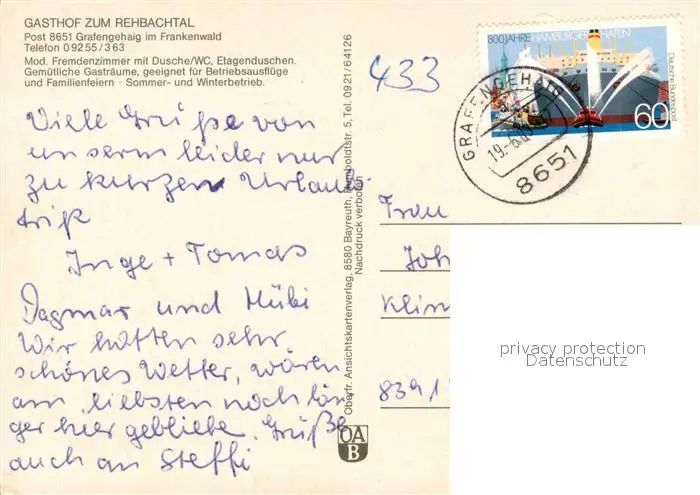 GASTHOF ZUM REHBACHTAL
Post 8651 Grafengehaig im Frankenwald
Telefon 0 92 55 / 3 63
Mod. Fremdenzimmer mit Dusche/WC, Etagenduschen.
Gemütliche Gasträume, geeignet für Betriebsausflüge
und Familienfeiern · Sommer- und Winterbetrieb.
Viele Grüße von
unserm leider nur
zu kurzen Urlaubs
trip
Inge + Tomas
Dagmar und Hübi
Wir hatten sehr
schönes Wetter, wären
am liebsten noch län
ger hier gebliebe. Grüße
auch an Steffi
Oberfr. Ansichtskartenverlag, 8580 Bayreuth, Humboldtstr. 5, Tel. 09 21 / 6 41 26
Nachdruck verboten
OA
B
433
800 JAHRE HAMBURGER HAFEN
Deutsche Bundespost
60
GRAFENGEHAIG
19.-6.
8651
Frau
Joh
Klin
8391
privacy protection
Datenschutz